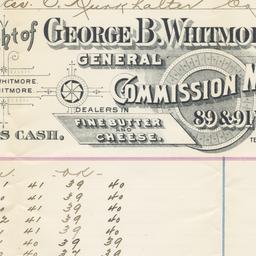 Burkhalter
ht of GEORGE B. WHITMO
GENERAL
COMMISSION M
WHITMORE.
ITMORE
DEALERS IN
FINE BUTTER
AND
CHEESE.
89 & 91
S CASH.
TE
1 41 39 40
0 41 39 40
0 41 39 40
2 41 39 40
1 41 39 40
40 39 39
40 37 39